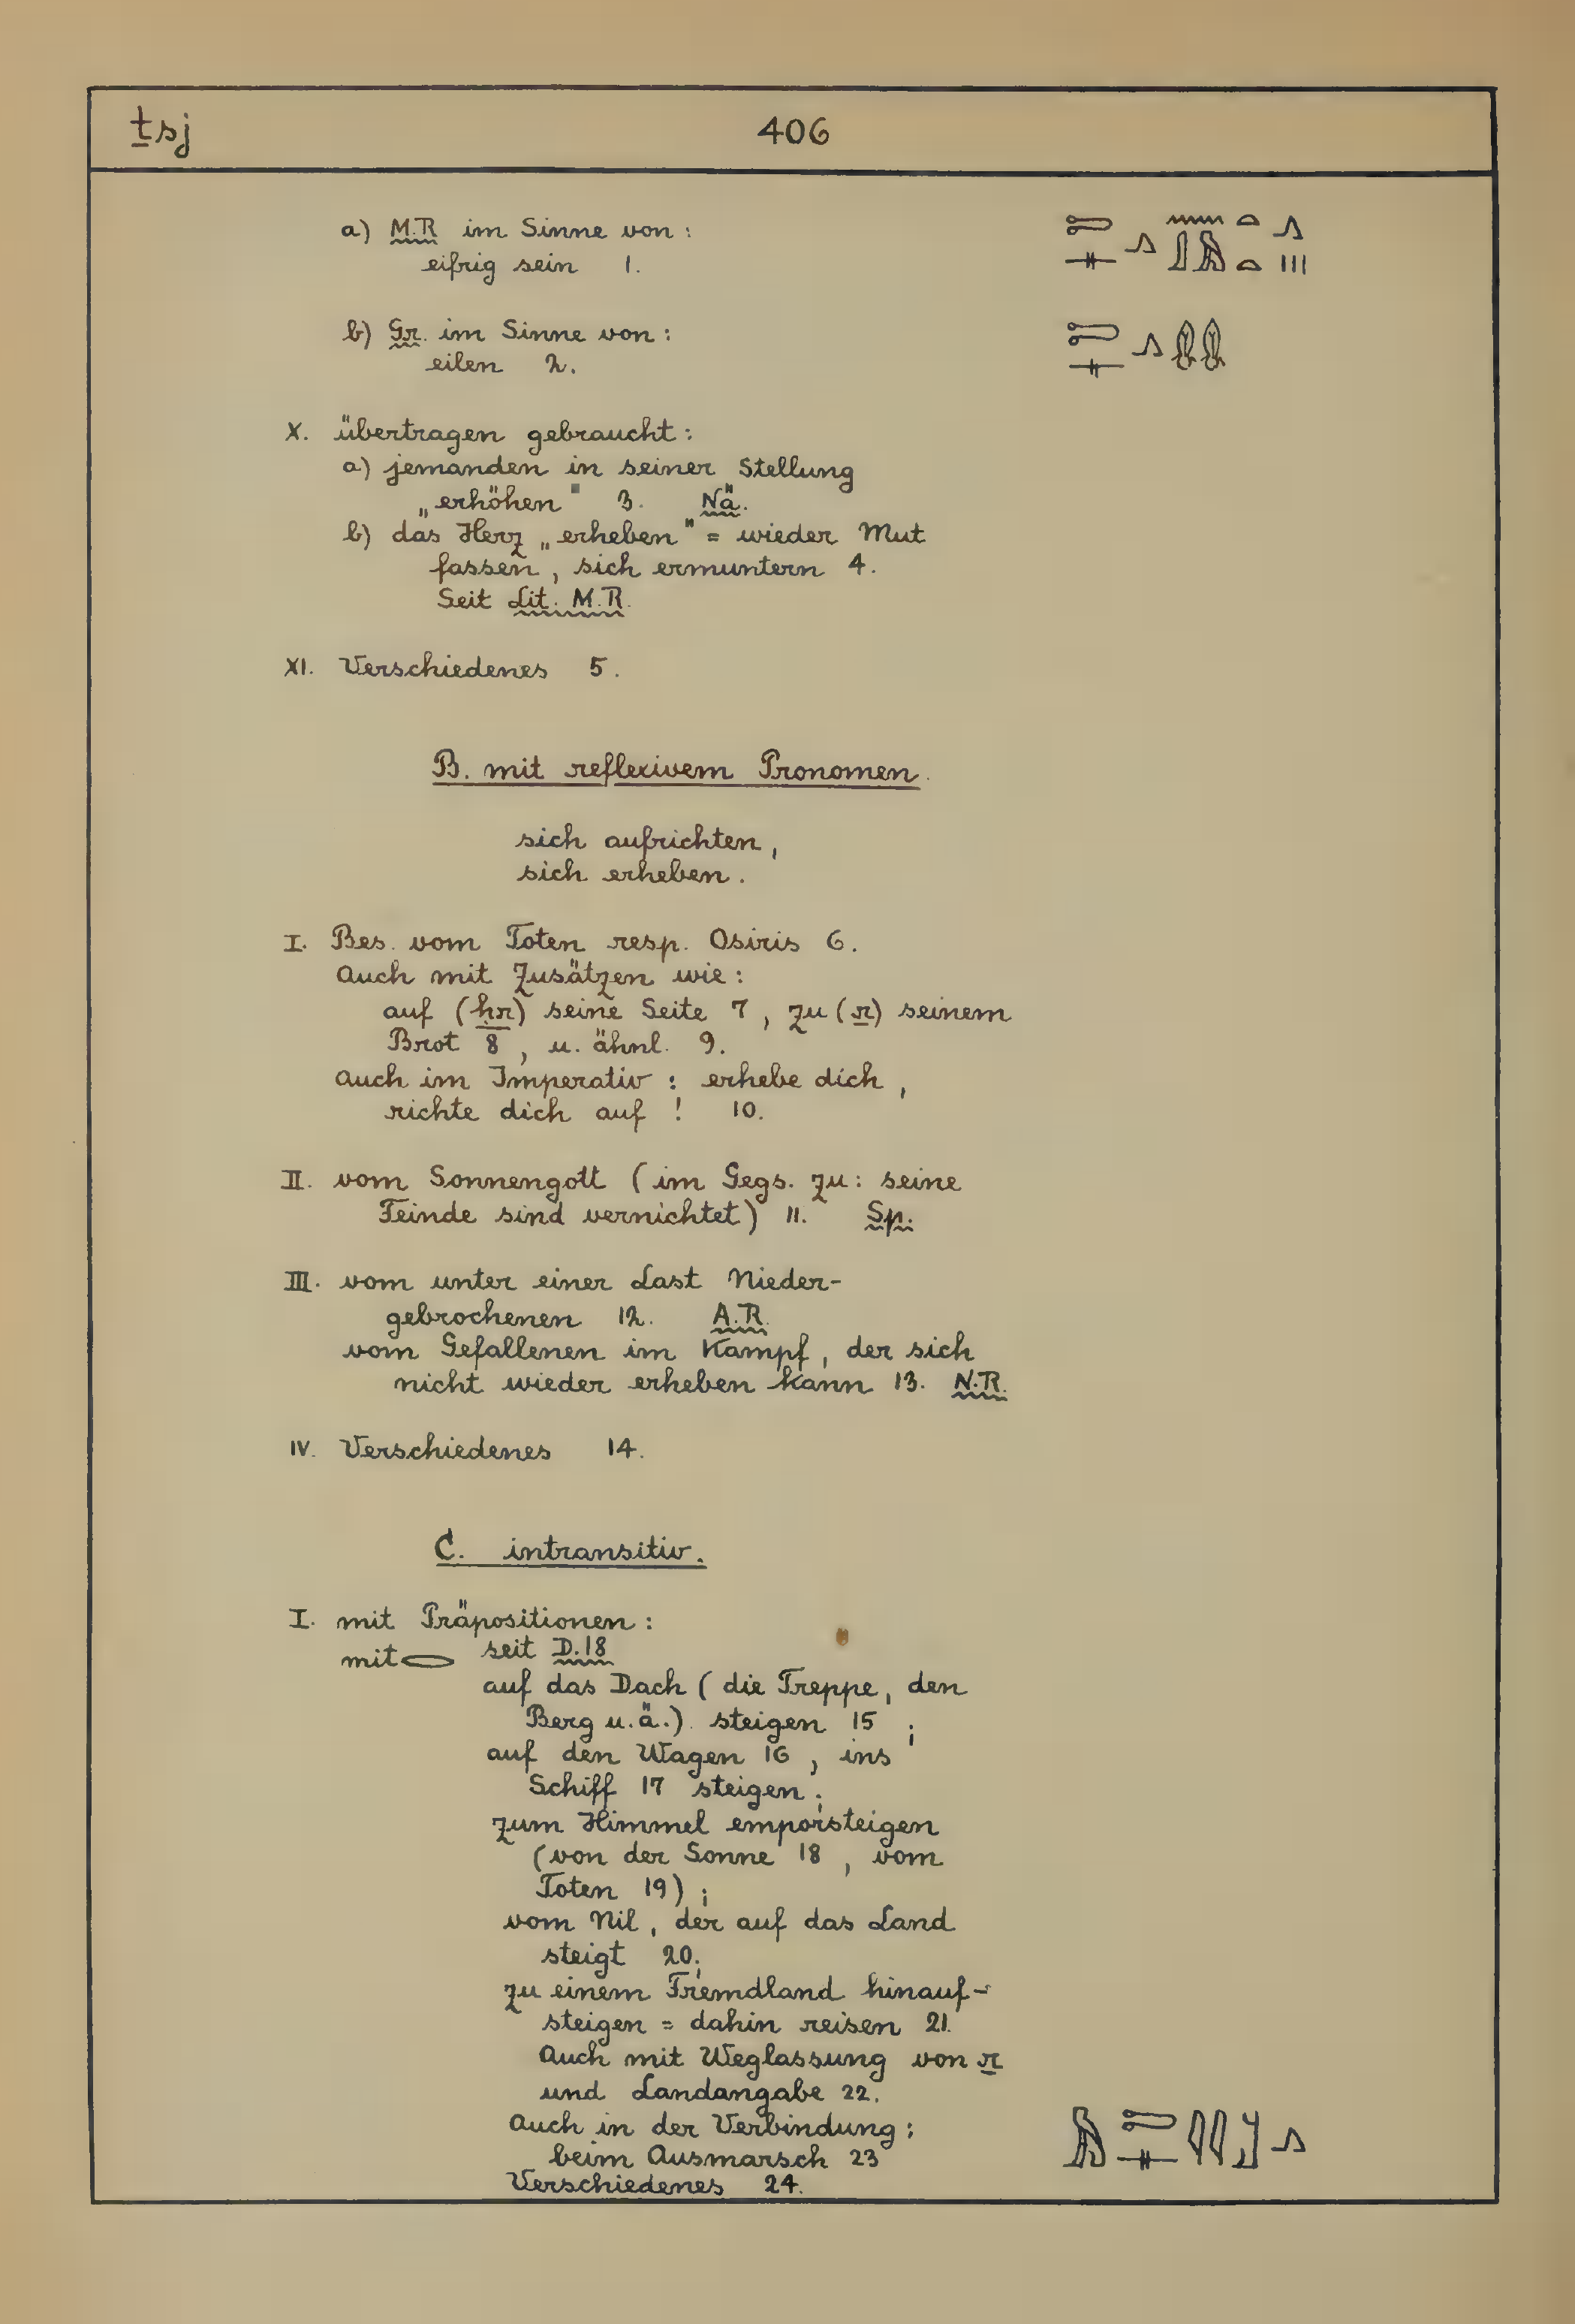 ṯsj 406
a) M.R im Sinne von:
eifrig sein 1.
b) Gr. im Sinne von:
eilen 2.
X. übertragen gebraucht:
a) jemanden in seiner Stellung
„erhöhen" 3. Nä.
b) das Herz „erheben" = wieder Mut
fassen, sich ermuntern 4.
Seit Lit. M.R.
XI. Verschiedenes 5.
B. mit reflexivem Pronomen.
sich aufrichten,
sich erheben.
I. Bes. vom Toten resp. Osiris 6.
Auch mit Zusätzen wie:
auf (ḥr) seine Seite 7, zu (r) seinem
Brot 8, u. ähnl. 9.
Auch im Imperativ: erhebe dich,
richte dich auf! 10.
II. vom Sonnengott (im Gegs. zu: seine
Feinde sind vernichtet) 11. Sp.
III. vom unter einer Last Nieder-
gebrochenen 12. A.R.
vom Gefallenen im Kampf, der sich
nicht wieder erheben kann 13. N.R.
IV. Verschiedenes 14.
C. intransitiv.
I. mit Präpositionen:
mit 𓂋 seit D.18
auf das Dach (die Treppe, den
Berg u.ä.) steigen 15;
auf den Wagen 16, ins
Schiff 17 steigen;
zum Himmel emporsteigen
(von der Sonne 18, vom
Toten 19);
vom Nil, der auf das Land
steigt 20;
zu einem Fremdland hinauf-
steigen = dahin reisen 21.
Auch mit Weglassung von r
und Landangabe 22.
Auch in der Verbindung:
beim Ausmarsch 23
Verschiedenes 24.